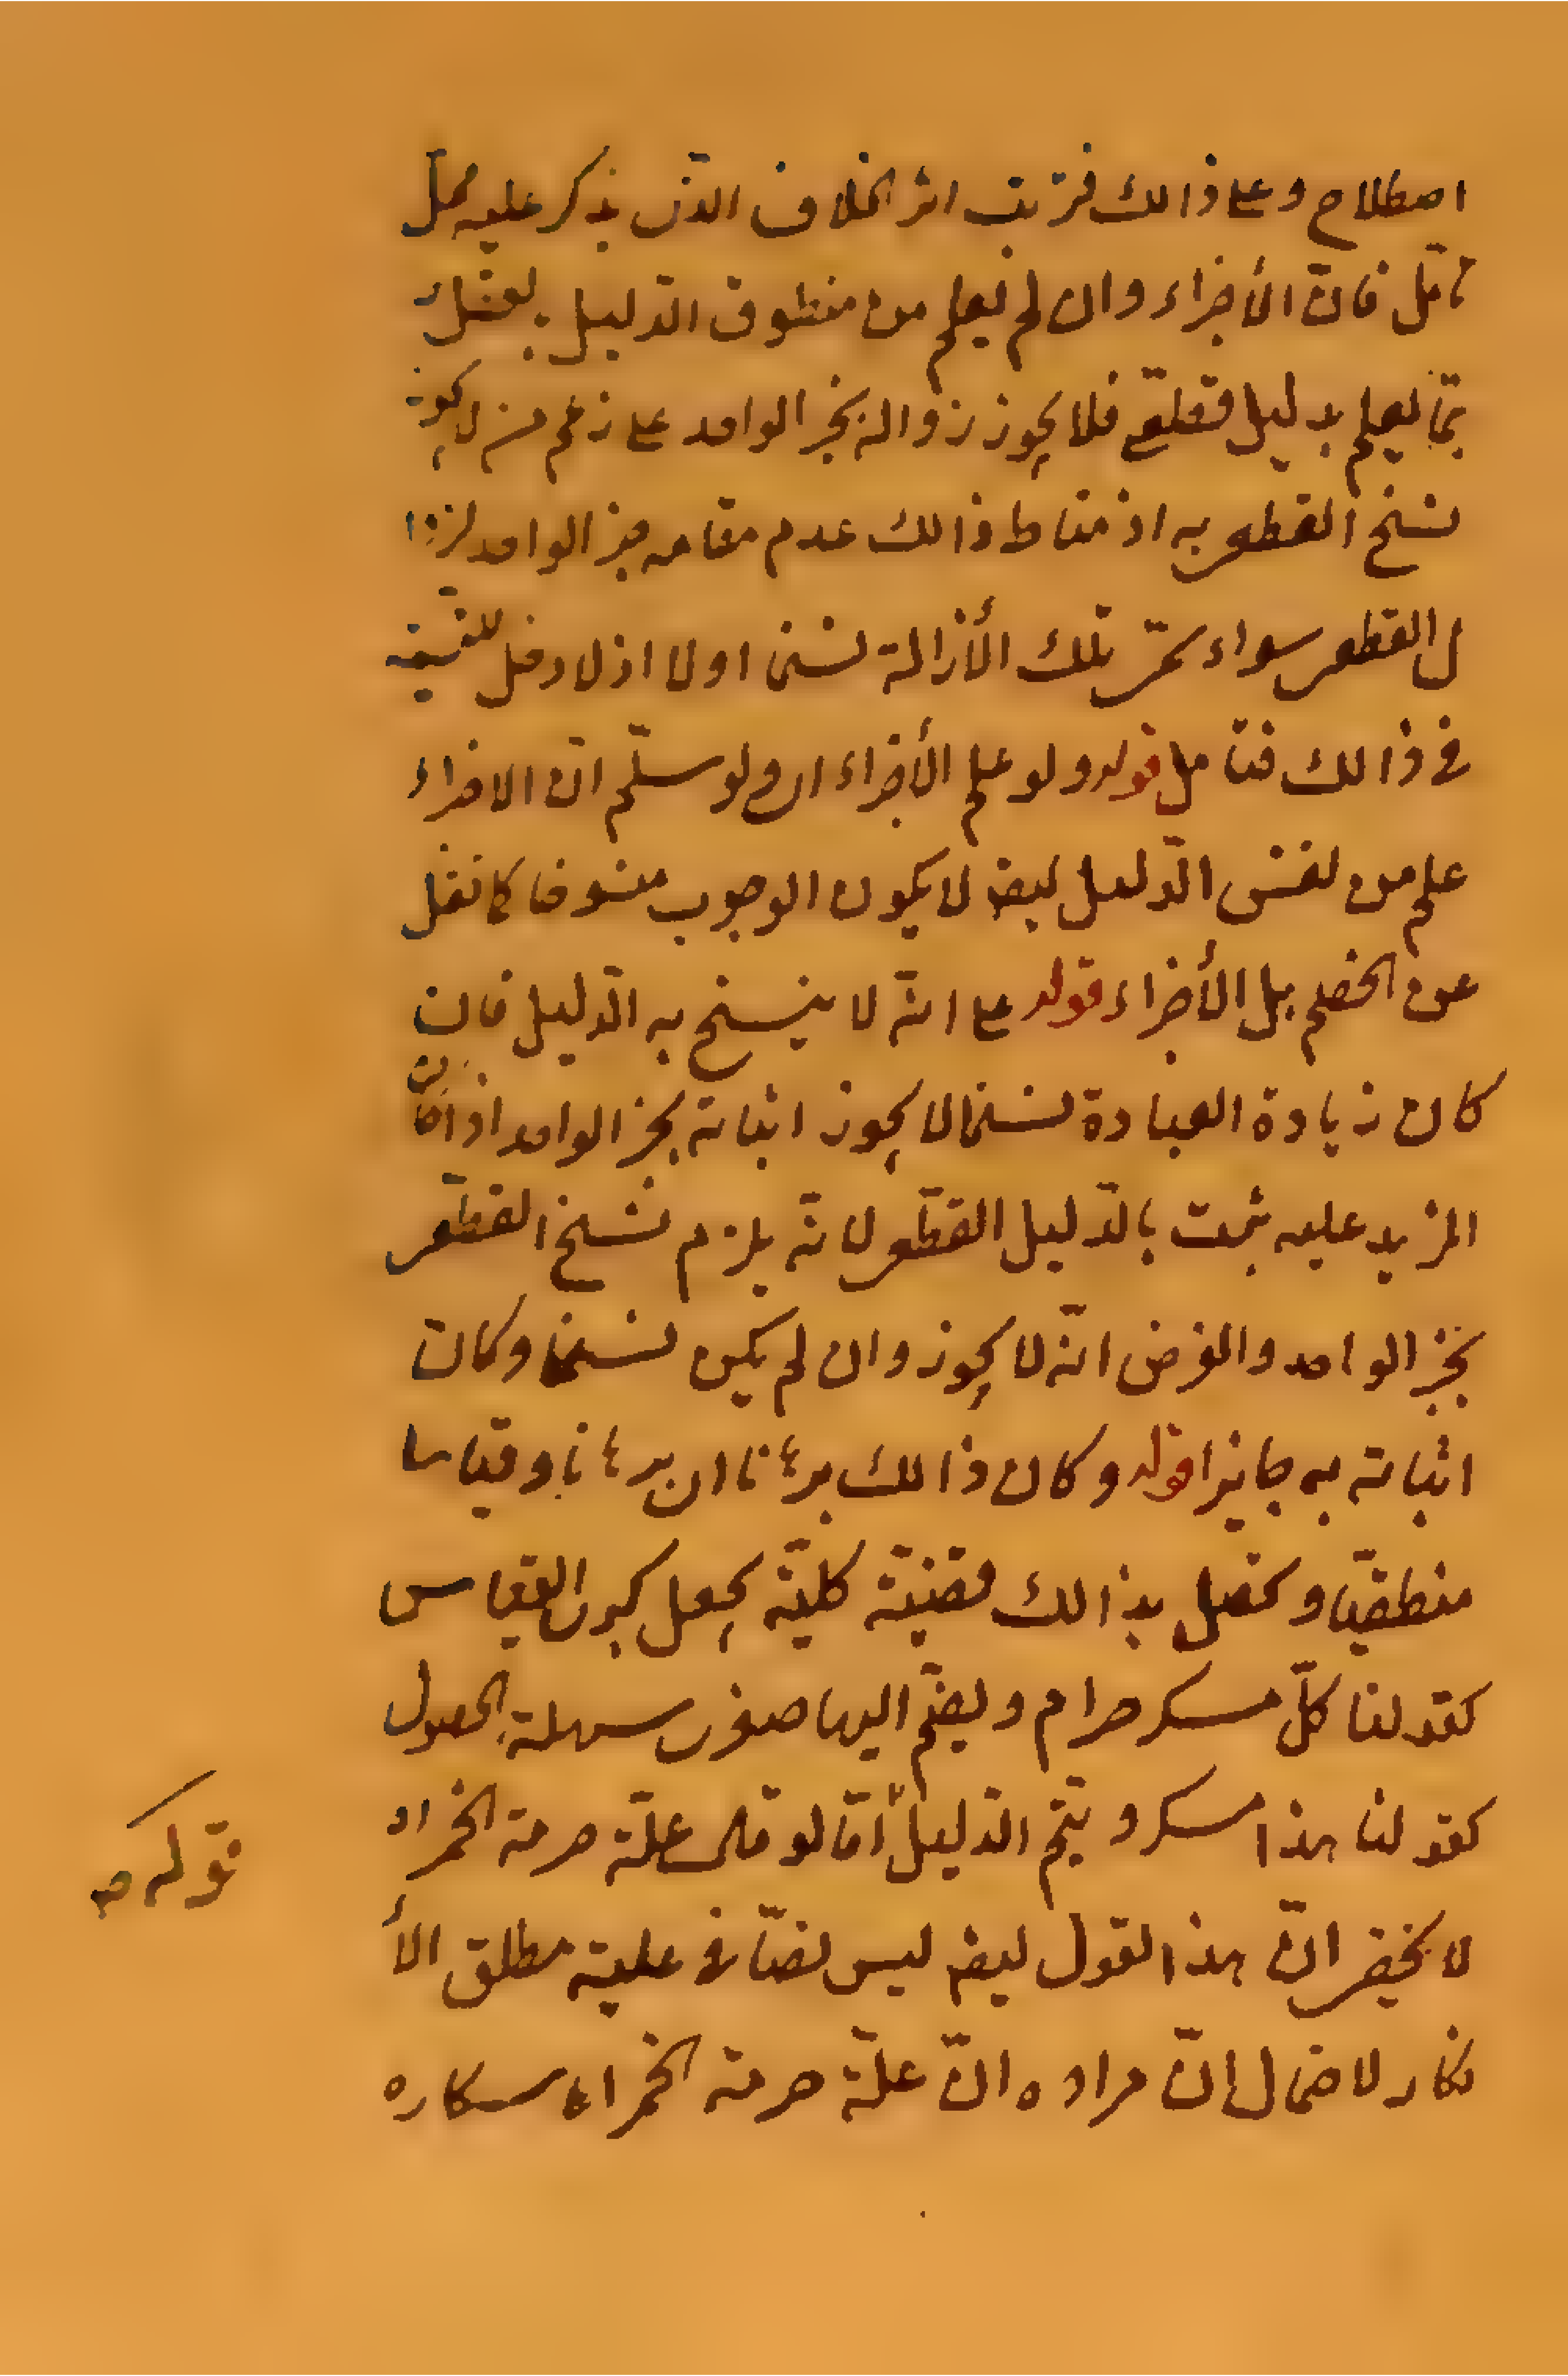 اصطلاح وعلى ذالك فترتب اثر الخلاف الذى يذكر عليه محل
تامّل فانّ الأجزاء وان لم يعلم من منطوق الدّليل
ممّا يعلم بدليل قطعىّ فلا يجوز زواله بخبر الواحد على زعم من لا يجوز
نسخ القطعى به اذ مناط ذالك عدم مقاومة خبر الواحد
ل القطعى سواء سمّى تلك الأزالة نسخا اولا اذ لا دخل للتسمية
فى ذالك فتامل قوله ولو علم الأجزاء اى ولو سلّم انّ الاجزاء
علم من نفس الدّليل ايضا لا يكون الوجوب منسوخا كما نقل
عن الخصم بل الأجزاء قوله على انّه لا ينسخ به الدّليل فان
كان زيادة العبادة نسخا لا يجوز اثباته بخبر الواحد اذا كان
المزيد عليه ثبت بالدّليل القطعى لانّه يلزم نسخ القطعى
بخبر الواحد والفرض انّه لا يجوز وان لم يكن نسخا وكان
اثباته به جايزا قوله وكان ذالك برهانا اى برهانا وقياسا
منطقيّا ويحصل بذالك قضيّة كليّة يجعل كبرى القياس
كقولنا كلّ مسكر حرام ويضمّ اليها صغرى سهلة الحصول
كقولنا هذا مسكر ويتمّ الدّليل أمّا لو قال علّة حرمة الخمر اه
لا يخفى انّ هذا القول ايضا ليس نصّا فى عليّة مطلق الأ
سكار لاحتمال انّ مراده انّ علّة حرمة الخمر اسكاره
قوله